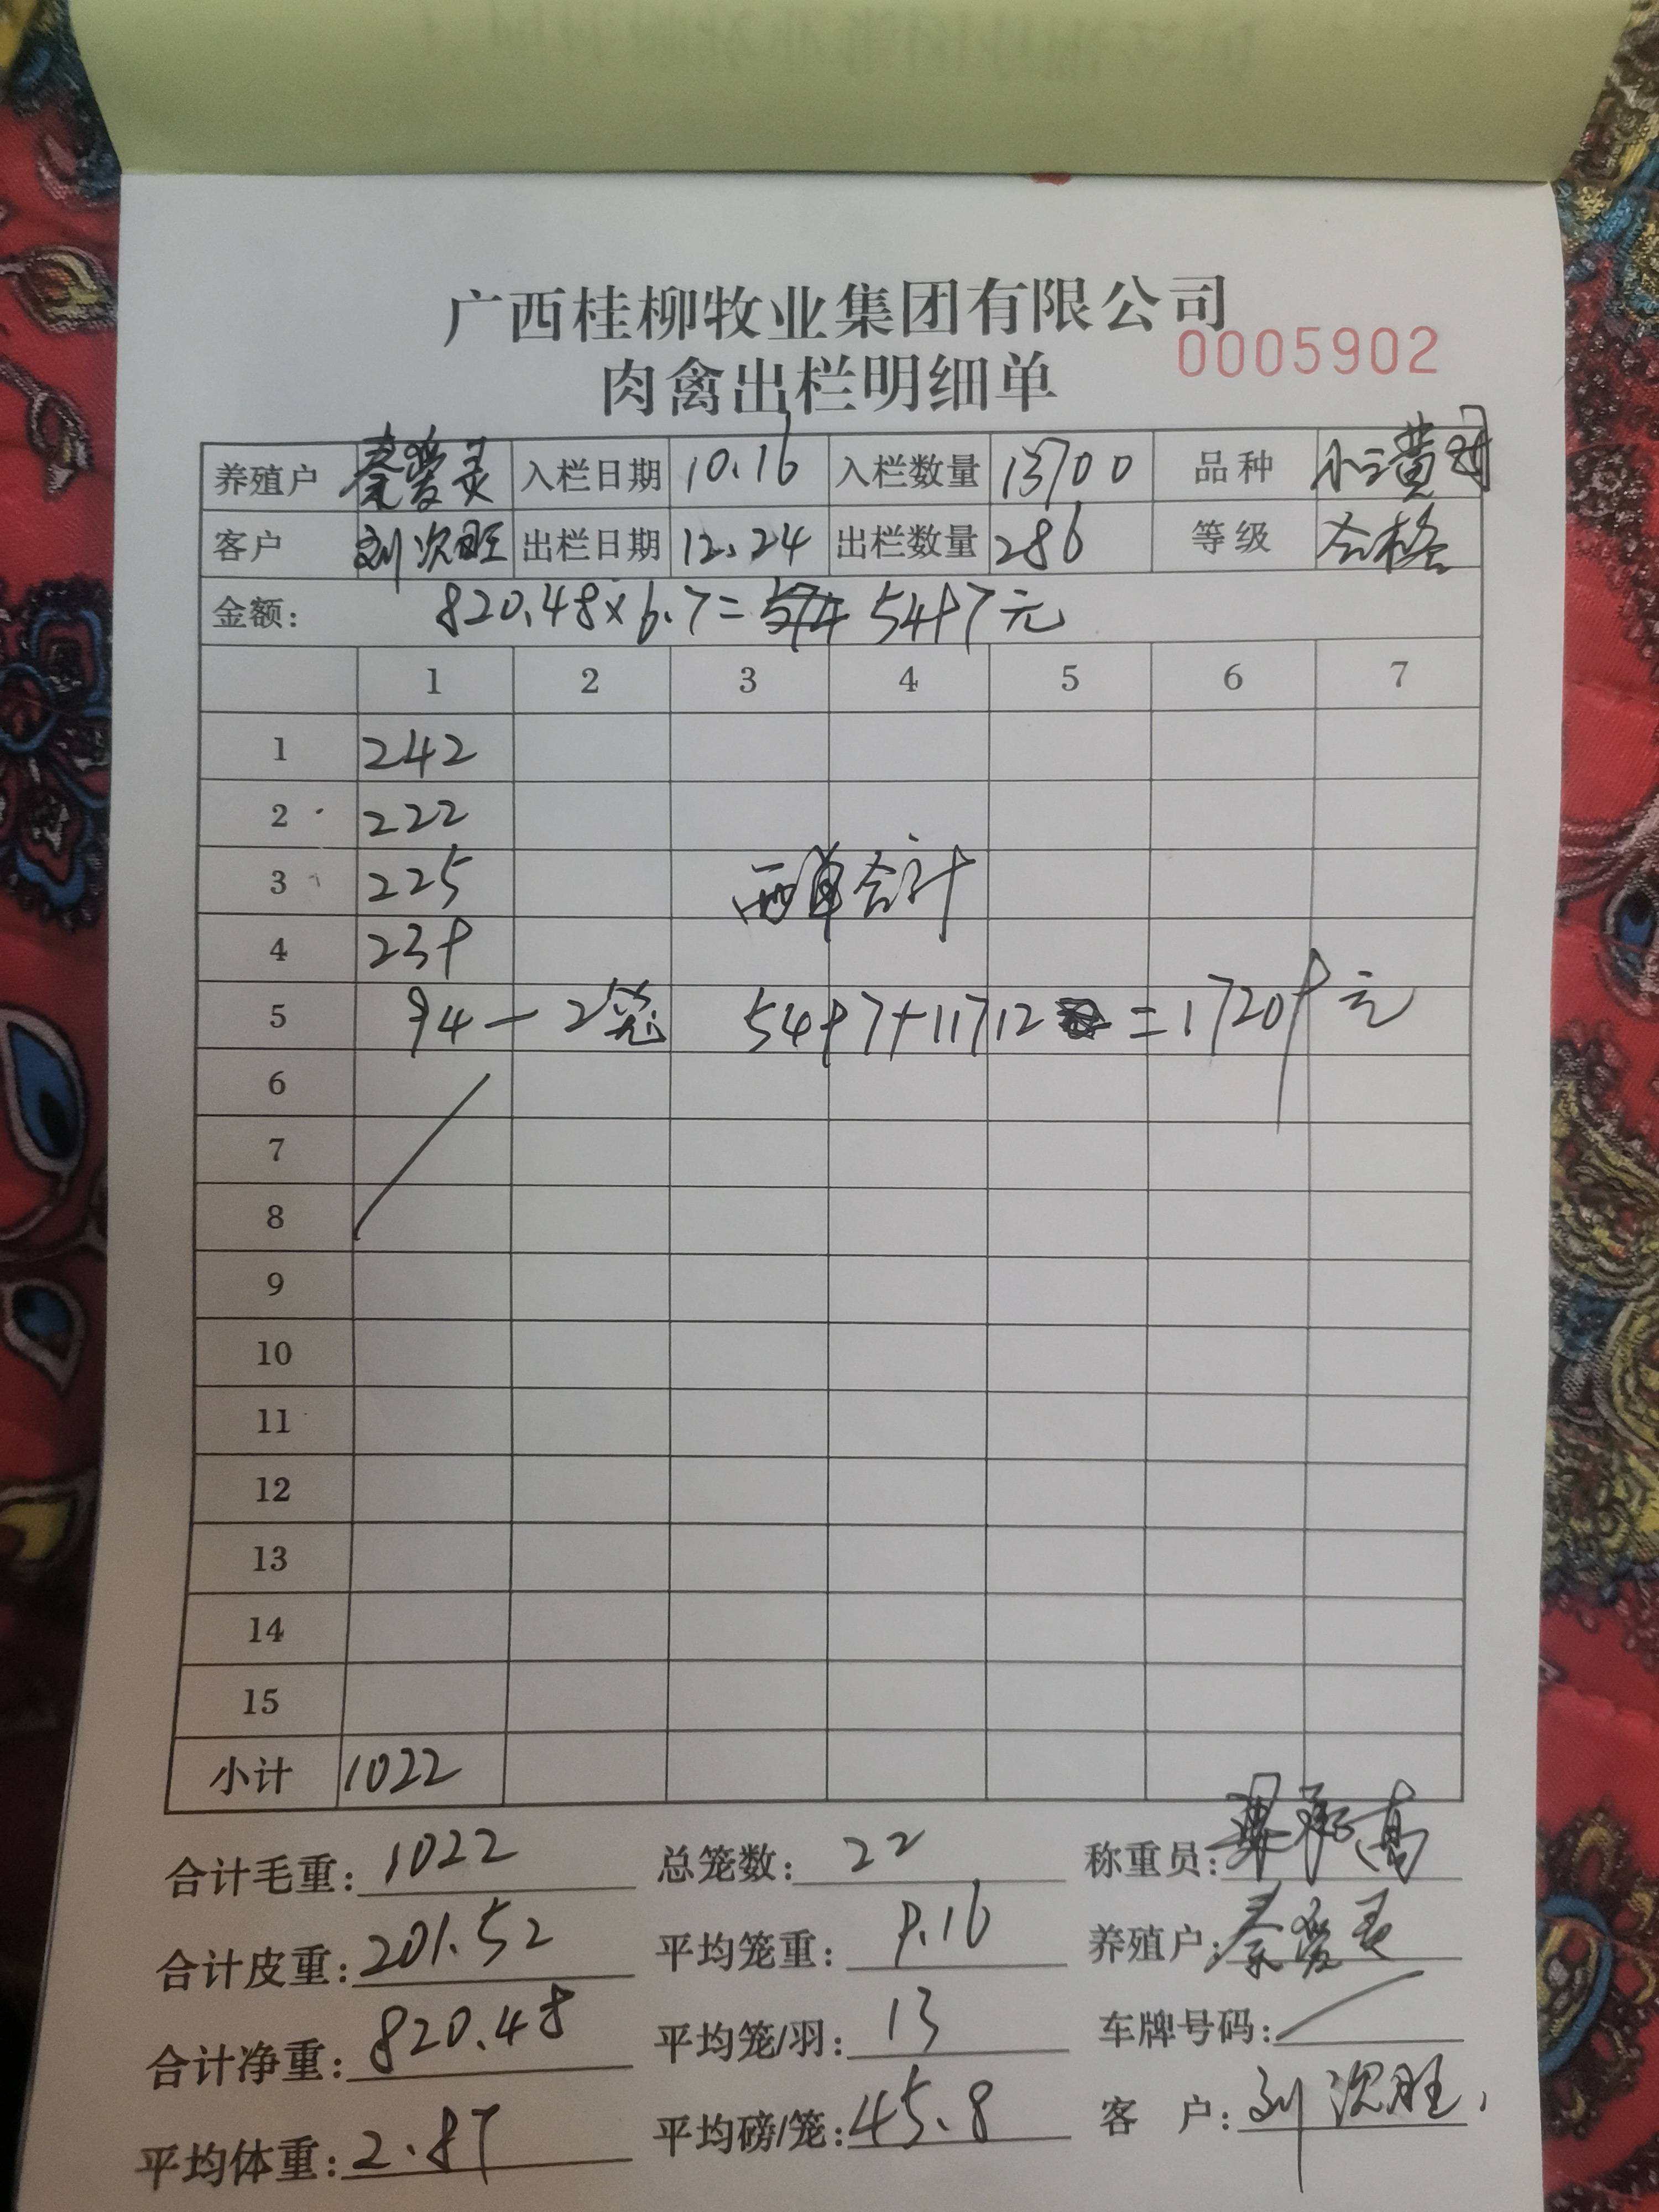 广西桂柳牧业集团有限公司
肉禽出栏明细单 0005902
养殖户 秦爱灵 入栏日期 10.16 入栏数量 13700 品种 小二黄
客户 刘次旺 出栏日期 12.24 出栏数量 286 等级 合格
金额: 820.48×6.7= 5497元
1 2 3 4 5 6 7
1 242
2 222
3 225 两单合计
4 239
5 94-2笼 5497+11712 =17209元
6
7
8
9
10
11
12
13
14
15
小计 1022
合计毛重: 1022 总笼数: 22 称重员:
合计皮重: 201.52 平均笼重: 9.16 养殖户: 秦爱灵
合计净重: 820.48 平均笼/羽: 13 车牌号码:
平均体重: 2.87 平均磅/笼: 45.8 客 户: 刘次旺